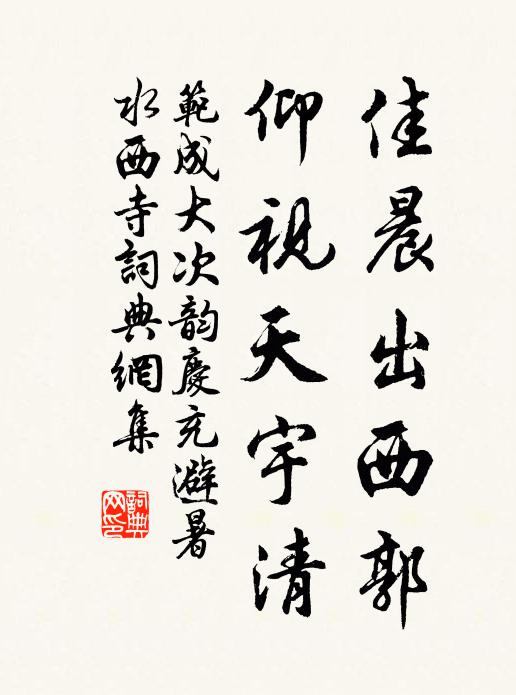 佳晨出西郭
仰視天宇清
範成大次韵慶充避暑
水西寺詞典網集
詞典
网印